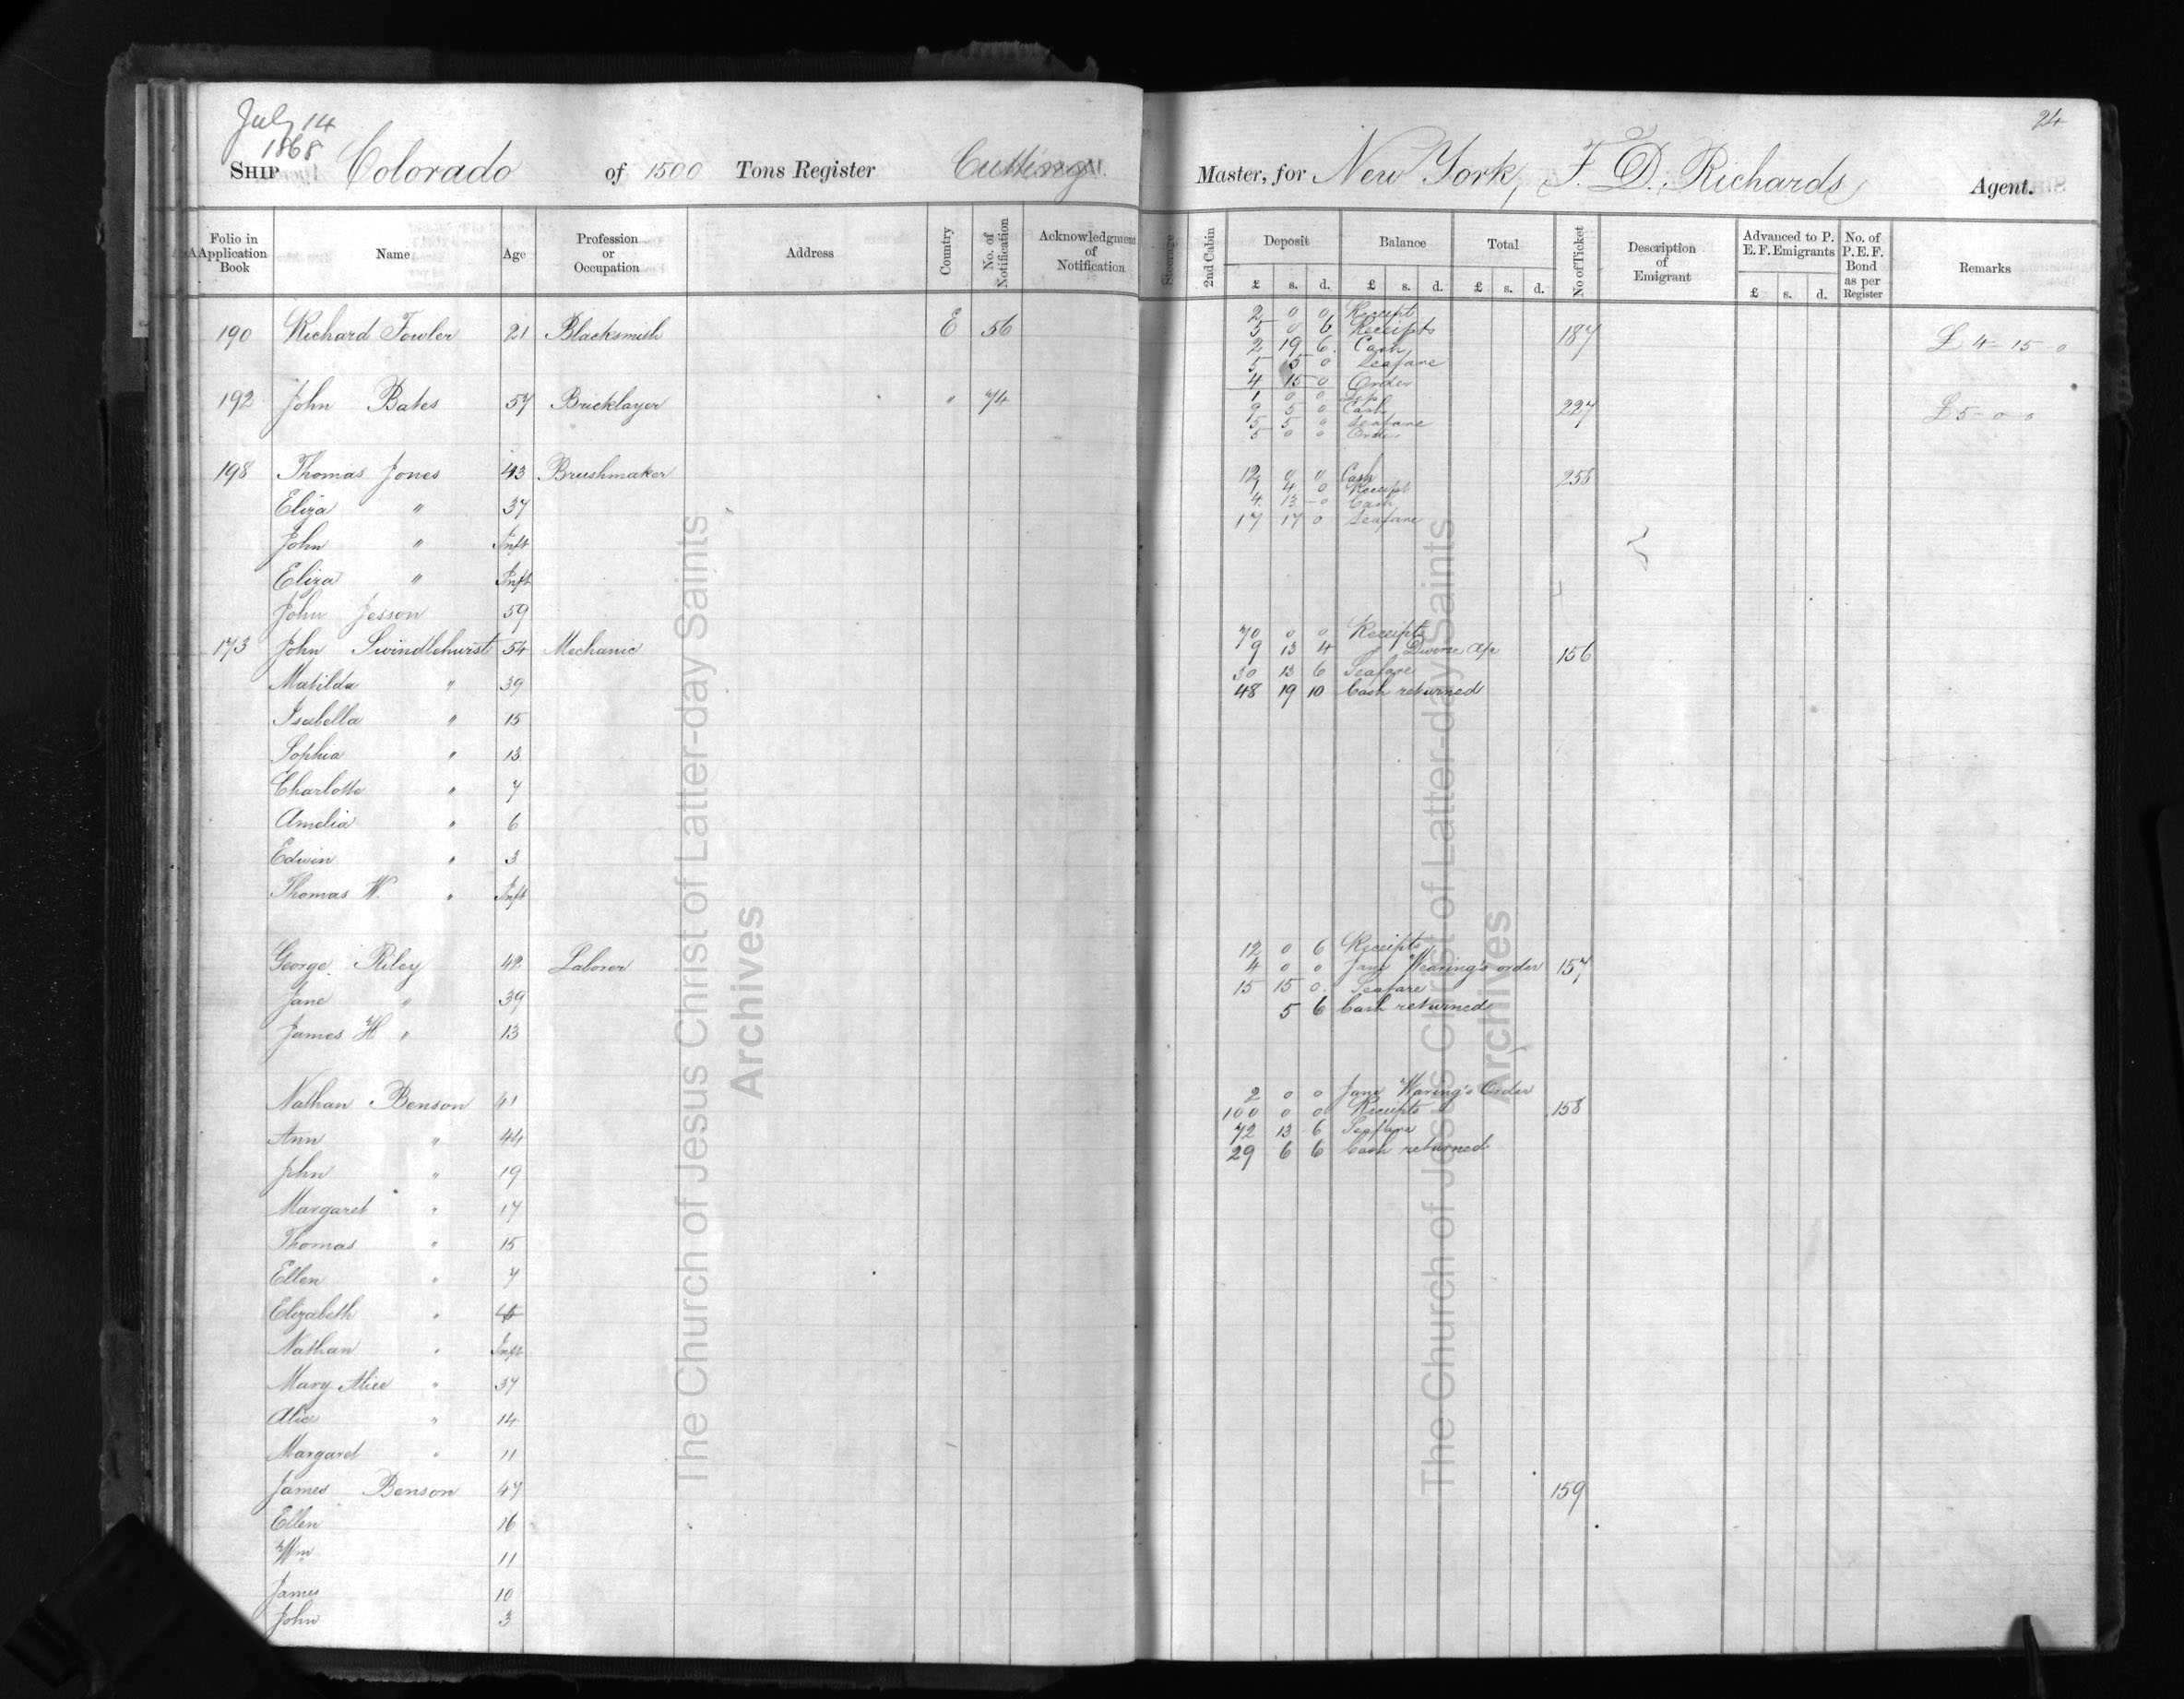 July 14
1868
24
SHIP Colorado of 1500 Tons Register Cutting Master, for New York, F. D. Richards Agent.
Folio in Application Book | Name | Age | Profession or Occupation | Address | Country | No. of Notification | Acknowledgment of Notification | Steerage | 2nd Cabin | Deposit £ s. d. | Balance £ s. d. | Total £ s. d. | No of Ticket | Description of Emigrant | Advanced to P. E. F. Emigrants £ s. d. | No. of P. E. F. Bond as per Register | Remarks
2 0 0 Receipt
190 Richard Fowler 21 Blacksmith E 56 5 0 6 Receipts 187 £ 4 - 15 - 0
2 19 6 Cash
5 5 0 Seafare
4 15 0 Order
1 0 0 Dep
192 John Bates 57 Bricklayer " 74 9 5 0 Cash 227 £ 5 - 0 - 0
5 5 0 Seafare
5 0 0 Order
198 Thomas Jones 43 Brushmaker 12 0 0 Cash 258
1 4 0 Receipt
Eliza " 37 4 13 0 Cash
17 17 0 Seafare
John " Inft
Eliza " Inft
John Jesson 59
70 0 0 Receipts
173 John Swindlehurst 54 Mechanic 9 13 4 Divine A/c 156
30 13 6 Seafare
Matilda " 39 48 19 10 Cash returned
Isabella " 15
Sophia " 13
Charlotte " 7
Amelia " 6
Edwin " 3
Thomas W. " Inft
12 0 6 Receipts
George Riley 42 Laborer 4 0 0 Jane Wearing's order 157
15 15 0 Seafare
Jane " 39 5 6 Cash returned
James H " 13
2 0 0 Jane Waring's Order
Nathan Benson 41 100 0 0 Receipts 158
72 13 6 Seafare
Ann " 44 29 6 6 Cash returned
John " 19
Margaret " 17
Thomas " 15
Ellen " 7
Elizabeth "
Nathan " Inft
Mary Alice " 37
Alice " 14
Margaret " 11
James Benson 47 159
Ellen 16
Wm 11
James 10
John 3
The Church of Jesus Christ of Latter-day Saints
Archives
The Church of Jesus Christ of Latter-day Saints
Archives